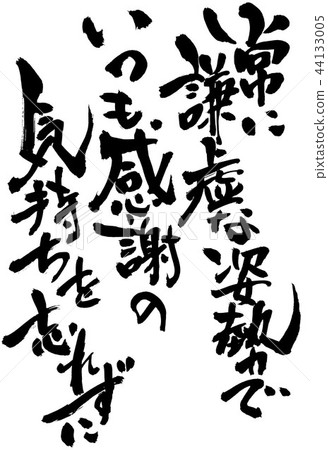 常に
謙虚な姿勢で
いつも感謝の
気持ちを忘れずに
44133005